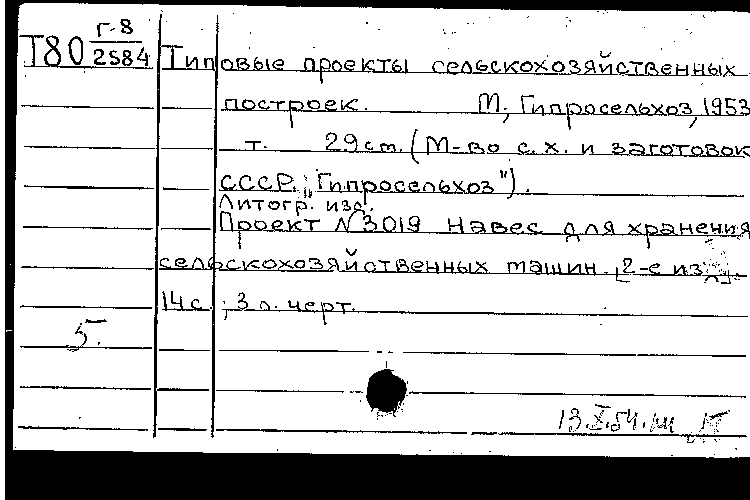 Т80 Г-8
2584
Типовые проекты сельскохозяйственных
построек. М, Гипросельхоз, 1953
т. 29см. (М-во с.х. и заготовок
СССР. „Гипросельхоз").
Литогр. изд.
Проект №3019 Навес для хранения
сельскохозяйственных машин. [2-е изд].
14с., 3 л. черт.
5.
13.X.54.